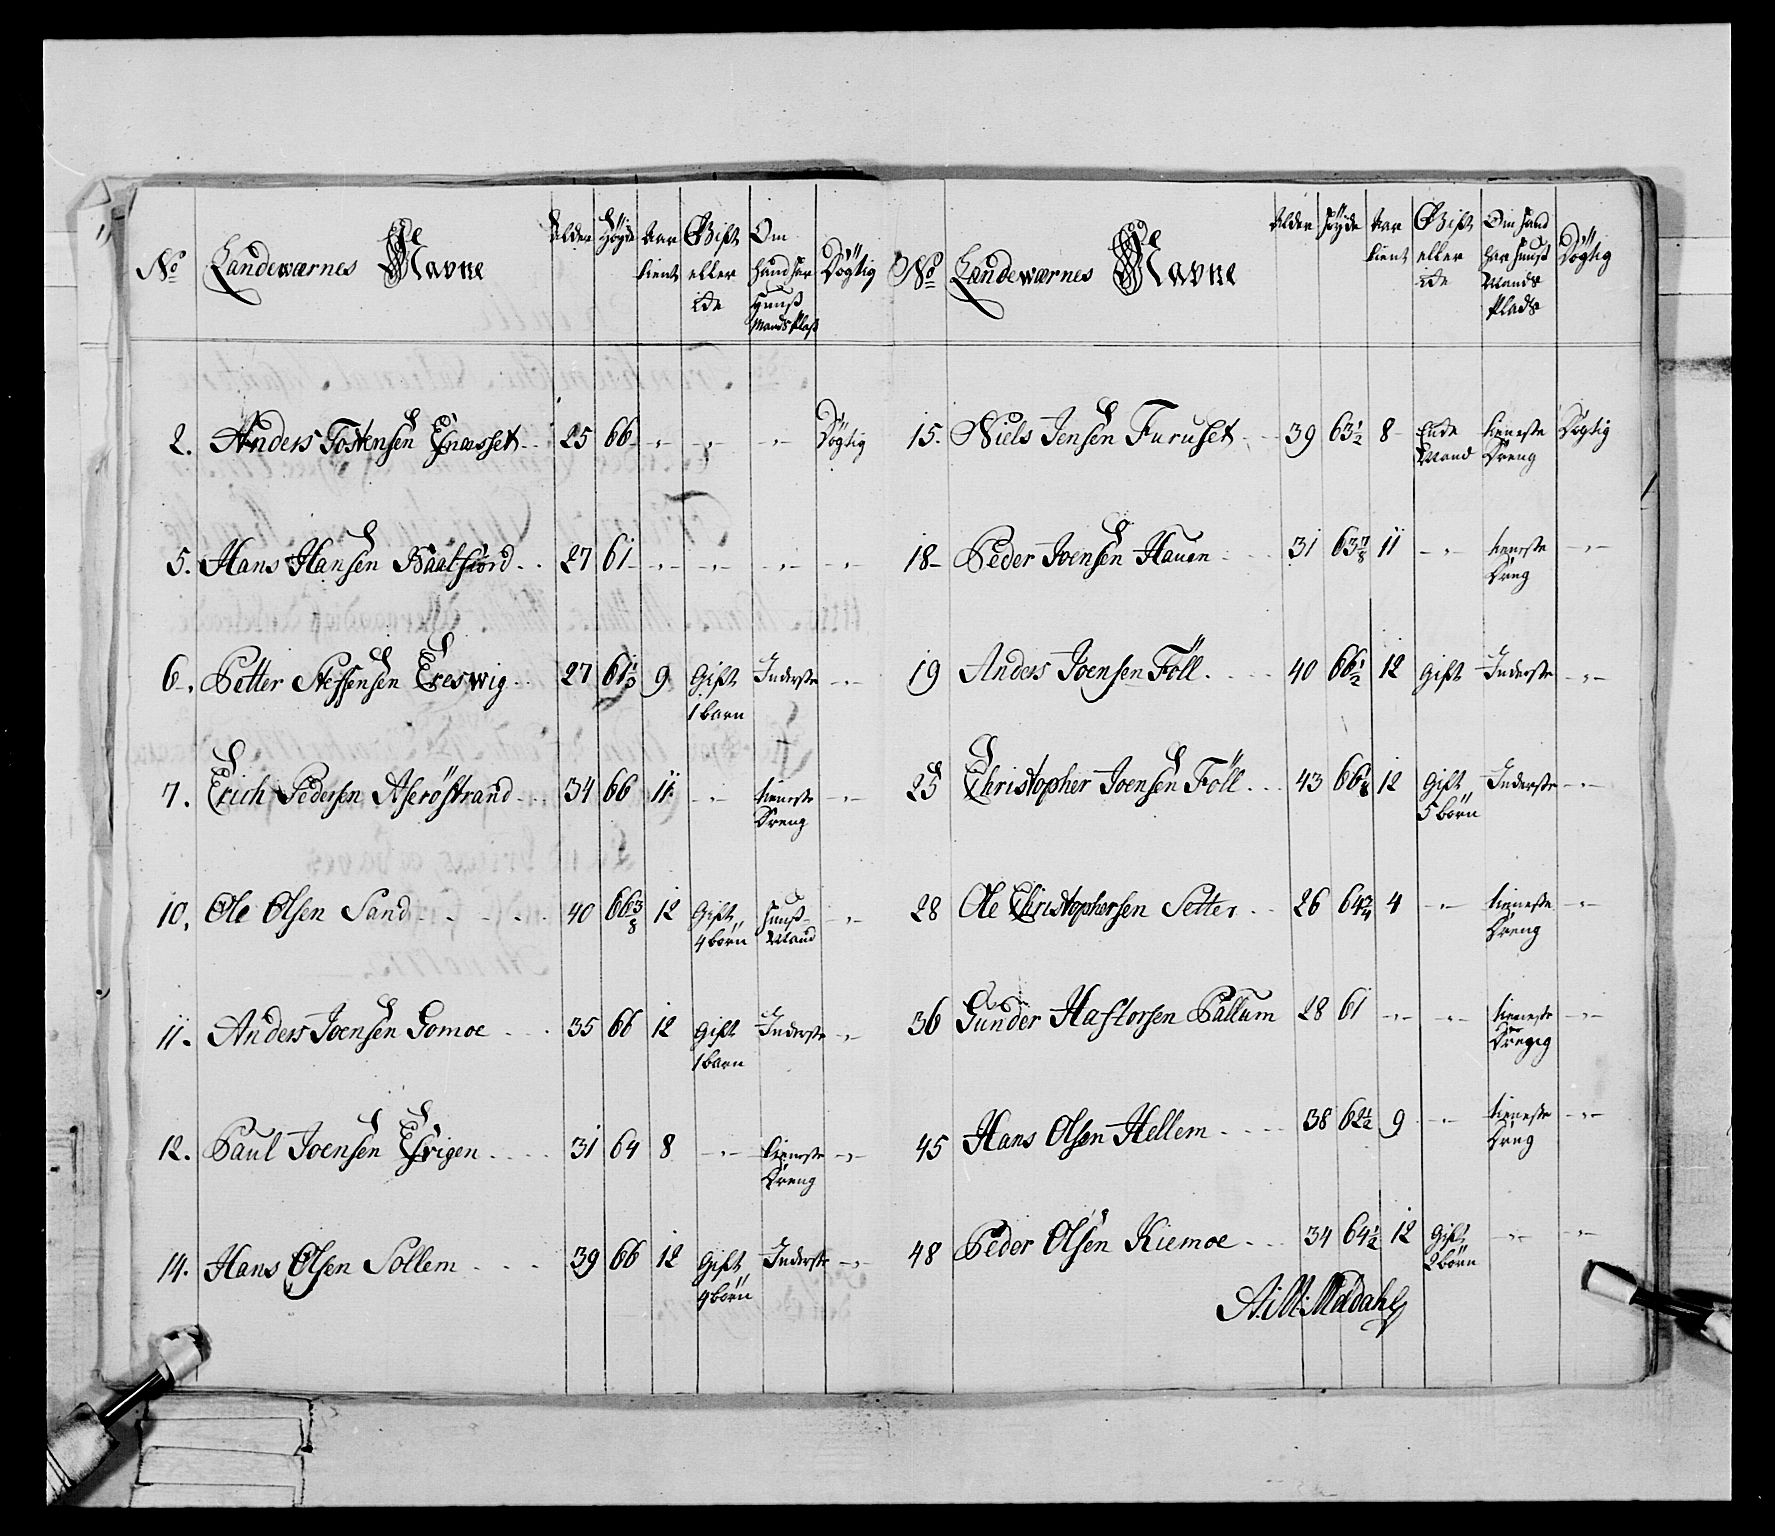 No Landewærnes Navne Alder Høyde Aar tient Gift eller ide Om hand har Huuß Mands Plaß Dögtig
2. Anders Tostensen Gnæsset 25 66 - - - Dögtig
5. Hans Hansen Baatsiord 27 61 - - - -
6. Petter Steffensen Ereswig 27 61½ 9 Gift 1 barn Inderste -
7. Erich Pedersen Aseröstrand 34 66 11 - tieneste Dreng -
10. Ole Olsen Sand 40 66 3/8 12 Gift 4 börn Huuß Mand -
11. Anders Joensen Gomoe 35 66 12 Gift 1 barn Inderste -
12. Paul Joensen 31 64 8 - tieneste Dreng -
14. Hans Olsen Sollem 39 66 12 Gift 4 börn Inderste -
No Landewærnes Navne Alder Høyde Aar tient Gift eller ide Om hand har Huuß Mands Plads Dögtig
15. Niels Jensen Furuset 39 63½ 8 Enke Mand tieneste Dreng Dögtig
18 Peder Joensen Hauen 31 63 7/8 11 - tieneste Dreng -
19 Anders Joensen Föll 40 66½ 12 Gift Inderste -
25 Christopher Joensen Föll 43 66 12 Gift 5 börn Inderste -
28 Ole Christophersen Setter 26 64¾ 4 - tieneste Dreng -
36 Gunder Hastorsen Pallum 28 61 - - tieneste Dreng -
45 Hans Olsen Hellem 38 62½ 9 - tieneste Dreng -
48 Peder Olsen Kiemoe 34 64½ 12 Gift 2 börn - -